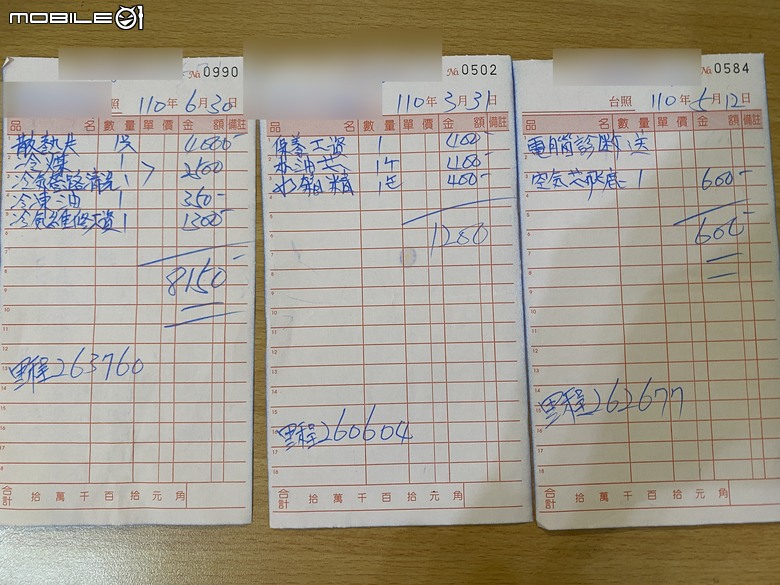 MOBILE01
№ 0990
台照 110年 6月 30日
品 名 數量 單價 金額 備註
散熱片 1 4000-
冷煤 1
冷氣管路清洗 1 > 2500
冷凍油 1 350-
冷氣維修工資 1 1300-
8150-
里程263760
合計 拾 萬 千 百 拾 元 角
№ 0502
110年 3月 31日
品 名 數量 單價 金額 備註
保養工資 1 400-
400-
水箱精 1 400-
1200
里程260604
合計 拾 萬 千 百 拾 元 角
№ 0584
台照 110年 5月 12日
品 名 數量 單價 金額 備註
電腦診斷 送
空氣芯 1 600-
600-
里程262677
合計 拾 萬 千 百 拾 元 角